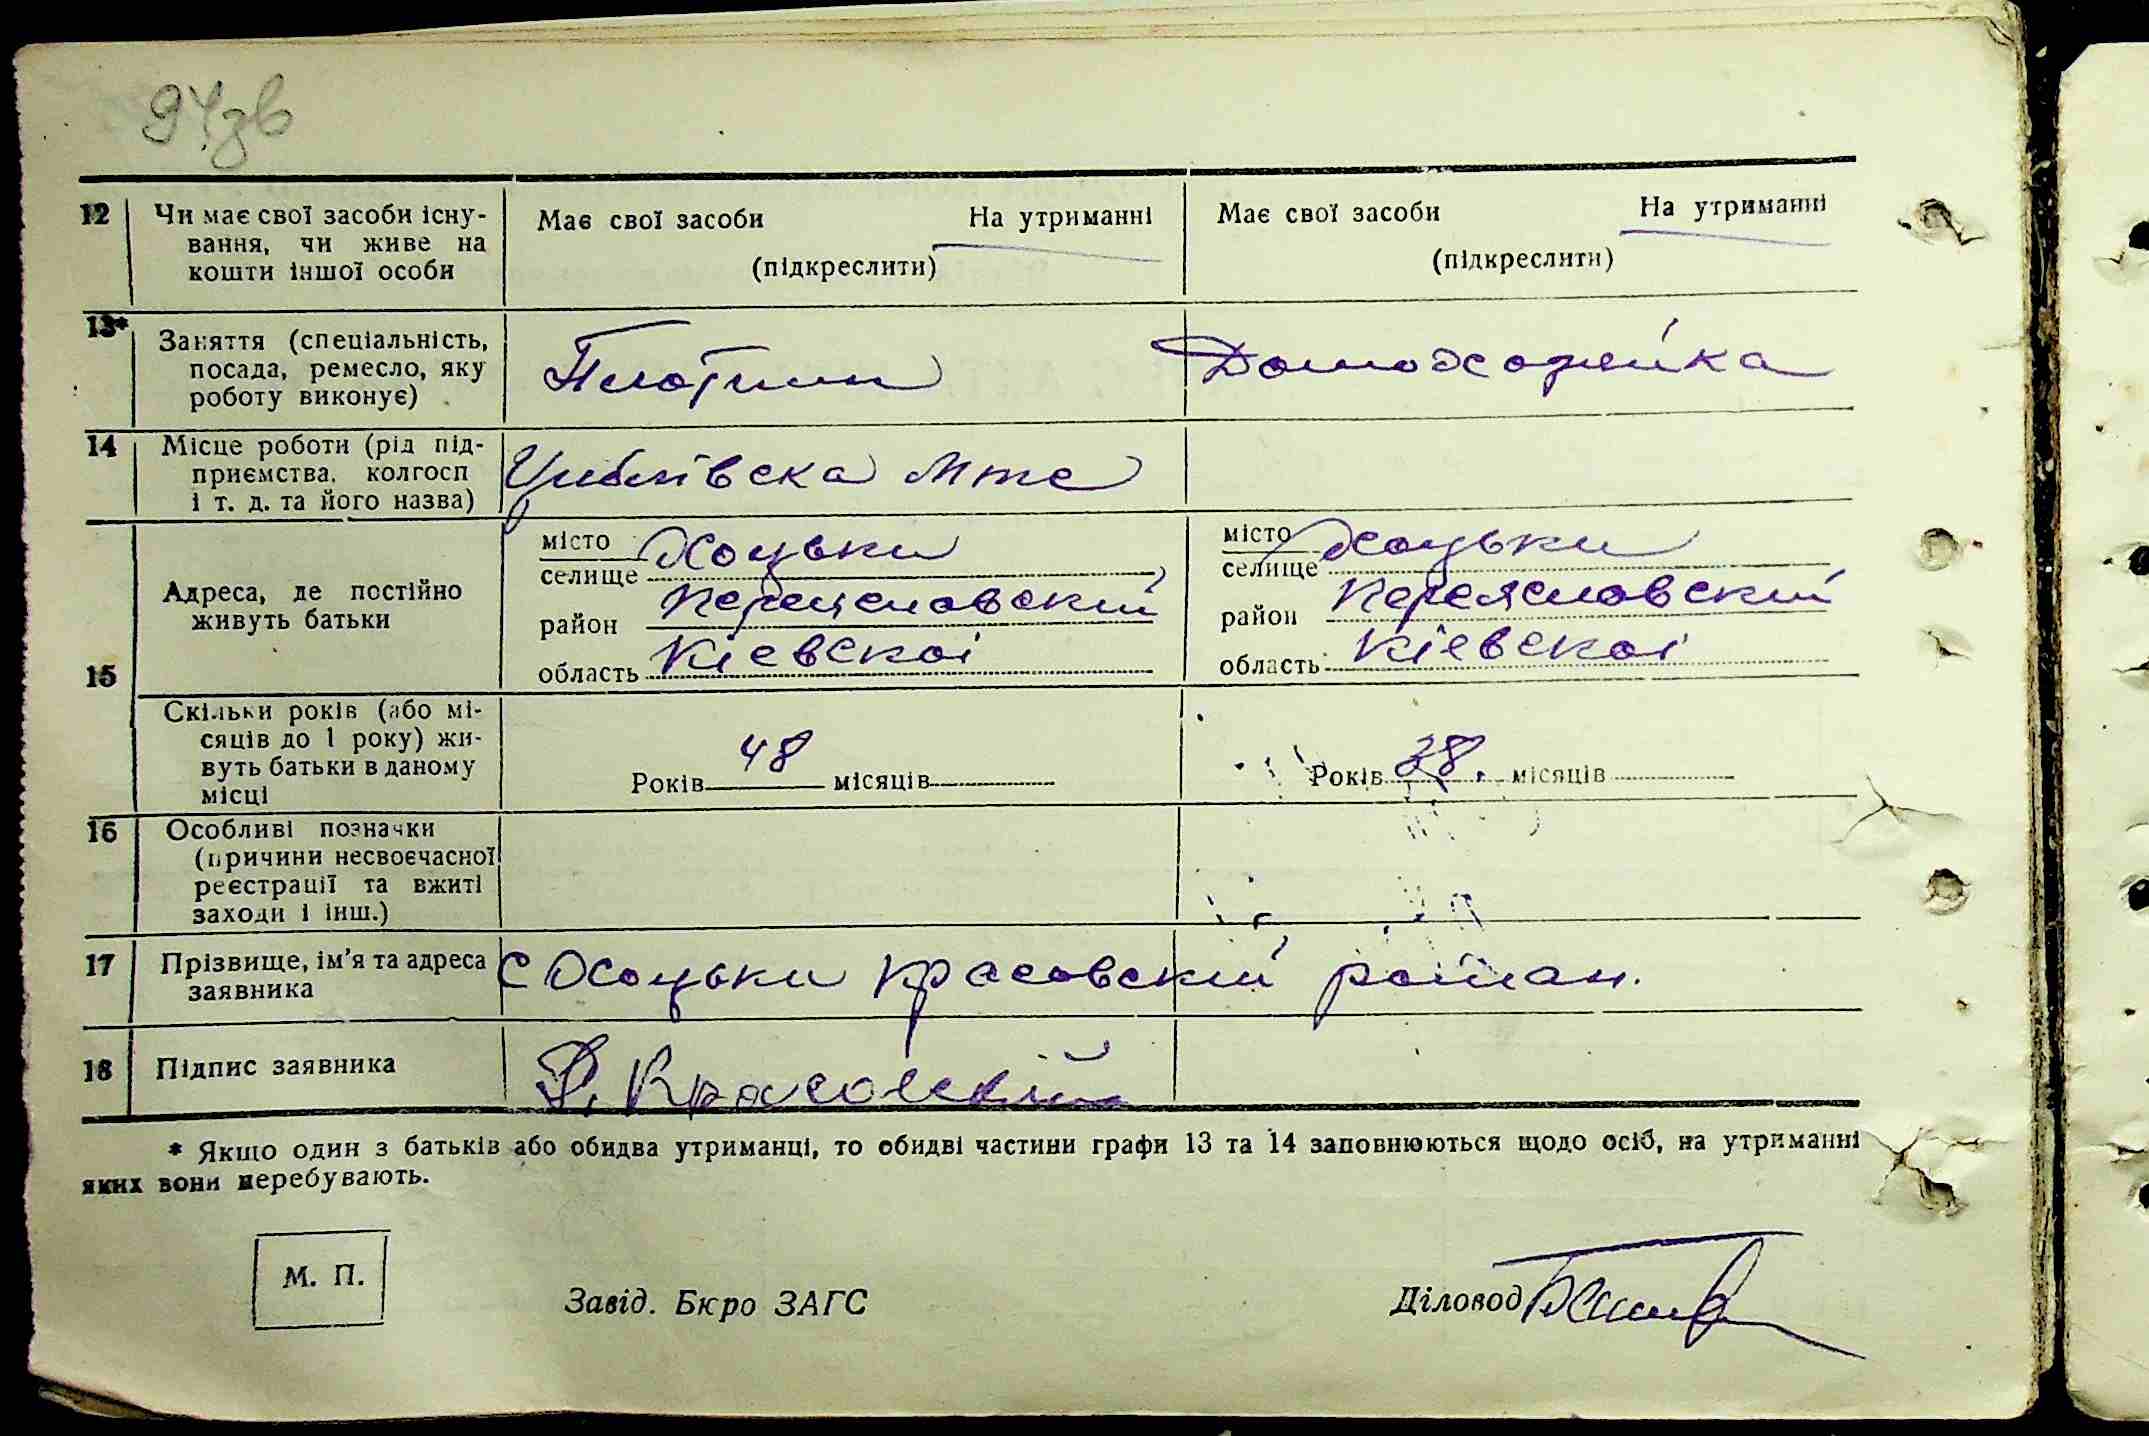 94зв
12 Чи має свої засоби існу-
вання, чи живе на
кошти іншої особи
Має свої засоби На утриманні
(підкреслити)
Має свої засоби На утриманні
(підкреслити)
13* Заняття (спеціальність,
посада, ремесло, яку
роботу виконує)
Плотник
Домохозяйка
14 Місце роботи (рід під-
приємства, колгосп
і т. д. та його назва)
Циблівска Мтс
15 Адреса, де постійно
живуть батьки
місто
селище Хоцьки
район Переяславский
область Кіевскої
місто
селище Хоцьки
район Переяславский
область Кіевскої
Скільки років (або мі-
сяців до 1 року) жи-
вуть батьки в даному
місці
Років 48 місяців
Років 38. місяців
16 Особливі позначки
(причини несвоєчасної
реєстрації та вжиті
заходи і інш.)
17 Прізвище, ім'я та адреса
заявника
с Хоцьки Красовский
18 Підпис заявника
Красовский
* Якщо один з батьків або обидва утриманці, то обидві частини графи 13 та 14 заповнюються щодо осіб, на утриманні
яких вони перебувають.
М. П.
Завід. Бюро ЗАГС
Діловод